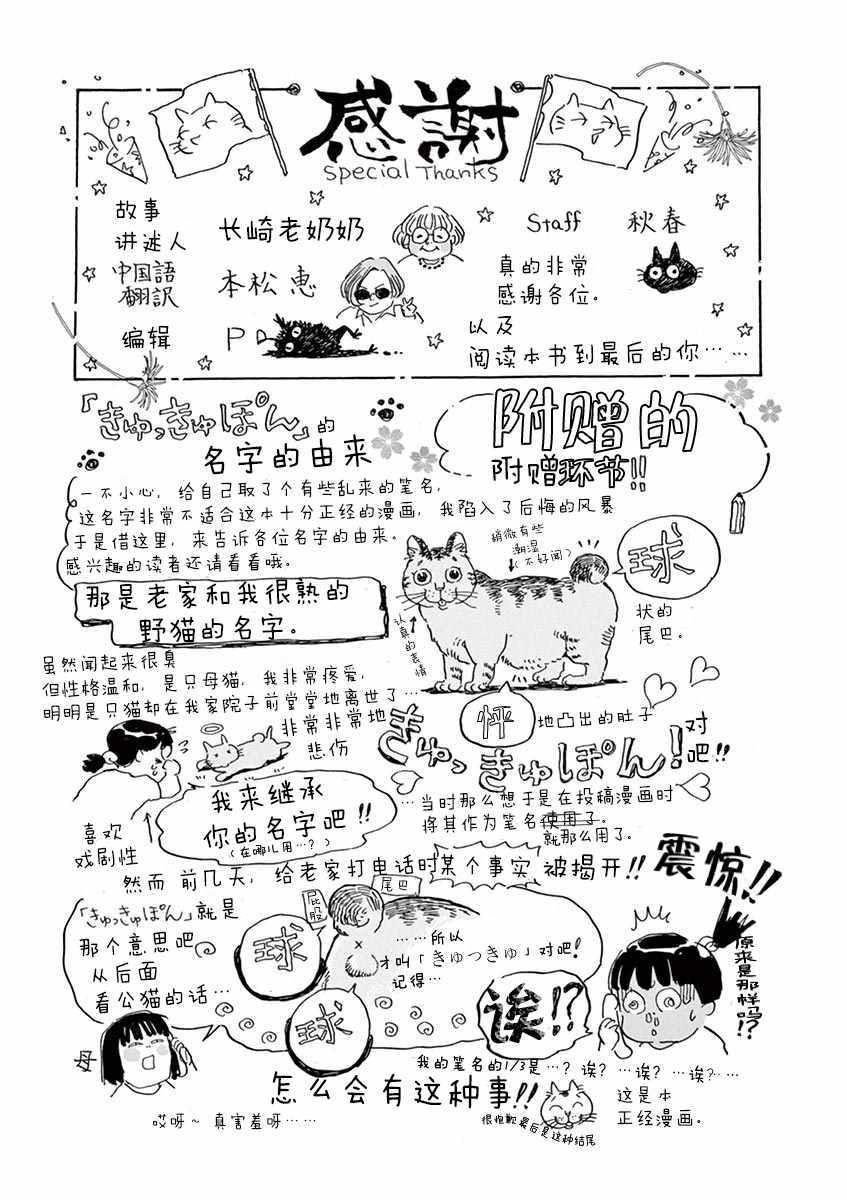 感謝
Special Thanks
故事
讲述人
长崎老奶奶
中国語
翻訳
本松惠
编辑
P
Staff
秋春
真的非常
感谢各位。
以及
阅读本书到最后的你……
「きゅっきゅぽん」的
名字的由来
附赠的
附赠环节!!
一不小心，给自己取了个有些乱来的笔名，
这名字非常不适合这本十分正经的漫画，我陷入了后悔的风暴
于是借这里，来告诉各位名字的由来。
感兴趣的读者还请看看哦。
那是老家和我很熟的
野猫的名字。
稍微有些
潮湿
(不好闻)
球
状的
尾巴。
认真的表情
虽然闻起来很臭
但性格温和，是只母猫，我非常疼爱，
明明是只猫却在我家院子前堂堂地离世了…
非常非常地
悲伤
怦
地凸出的肚子
きゅっきゅぽん!
对
吧!!
我来继承
你的名字吧!!
(在哪儿用…?)
喜欢
戏剧性
…当时那么想于是在投稿漫画时
将其作为笔名使用了。
就那么用了。
然而 前几天，给老家打电话时某个事实 被揭开!!
震惊!!
「きゅっきゅぽん」就是
那个意思吧
从后面
看公猫的话…
屁股
尾巴
球
球
……所以
才叫「きゅっきゅ」对吧!
记得…
诶!?
原来是那样吗!?
母
我的笔名的1/3是…? 诶? …诶? …诶?……
怎么会有这种事!!
这是本
正经漫画。
哎呀~ 真害羞呀……
很抱歉最后是这种结尾